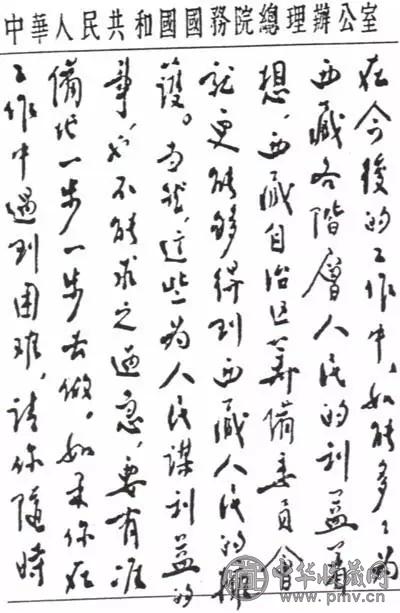 中華人民共和國國務院總理辦公室
在今後的工作中，如能多多為
西藏各階層人民的利益着
想，西藏自治区籌備委員會
就更能够得到西藏人民的擁
護。当然，这些為人民謀利益的
事，也不能求之過急，要有准
備地一步一步去做。如果你在
工作中遇到困难，請你隨時
中华收藏网
www.pmv.cn